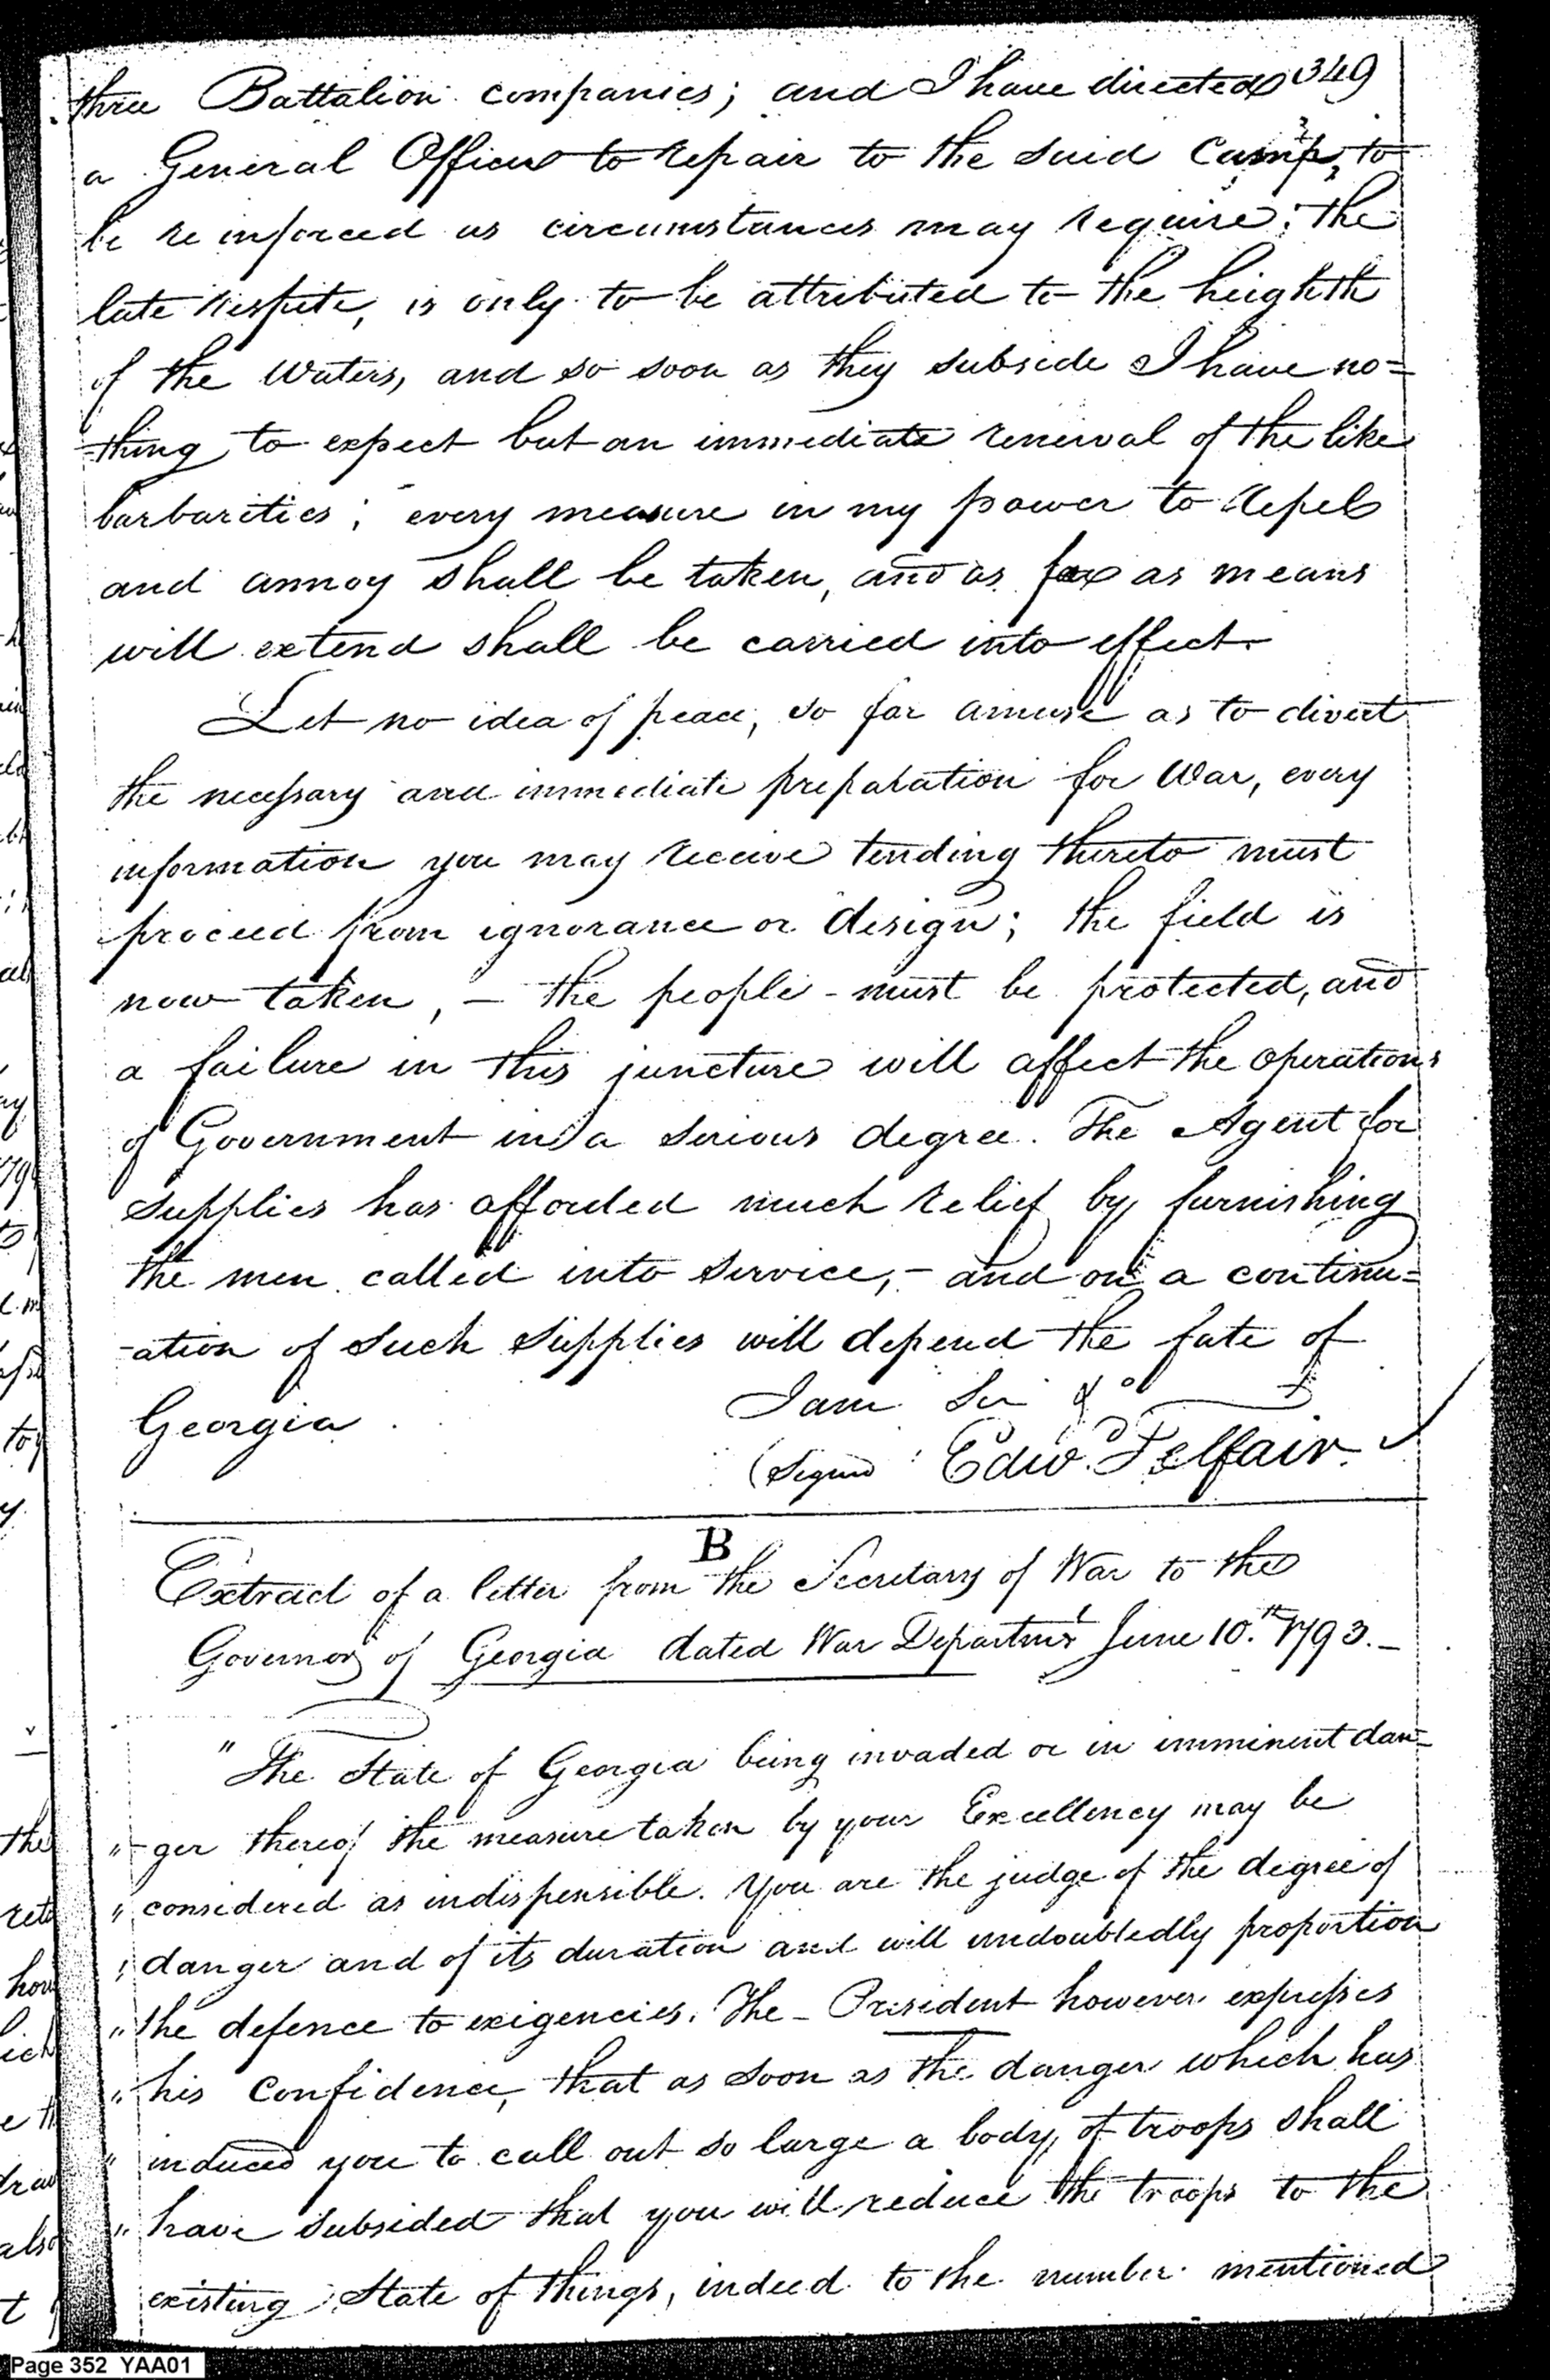 349
three Battalion companies; and I have directed
a General Officer to repair to the said Camp, to
be re inforced as circumstances may require: the
late respite, is only to be attributed to the heighth
of the Waters, and so soon as they subside I have no=
thing to expect but an immediate renewal of the like
barbarities; every measure in my power to repel
and annoy shall be taken, and as far as means
will extend shall be carried into effect.
Let no idea of peace, so far amuse as to divert
the necessary and immediate preparation for War, every
information you may receive tending thereto must
proceed from ignorance or design; the field is
now taken, — the people - must be protected, and
a failure in this juncture will affect the operations
of Government in a serious degree. The Agent for
supplies has afforded much relief by furnishing
the men called into service, - and on a continu=
-ation of such supplies will depend the fate of
Georgia. I am Sir &c
(Signed Edwd. Telfair.
B
Extract of a letter from the Secretary of War to the
Governor of Georgia dated War Departmt June 10.th 1793.—
"The State of Georgia being invaded or in imminent dan-
"-ger thereof the measure taken by your Excellency may be
"considered as indispensible. You are the judge of the degree of
"danger and of its duration and will undoubtedly proportion
"the defence to exigencies. The - President however expresses
"his confidence, that as soon as the danger which has
"induced you to call out so large a body of troops shall
"have subsided that you will reduce the troops to the
existing State of things, indeed to the number mentioned
Page 352 YAA01